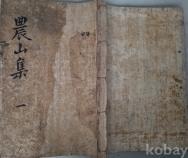 農山集
一
kobay